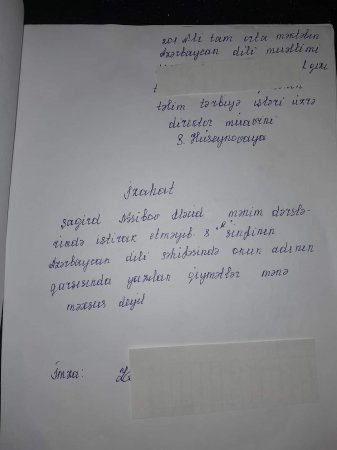 201 №li tam orta məktəbin
Azərbaycan dili müəllimi
qızı
təlim tərbiyə işləri üzrə
direktor müavini
S. Hüseynovaya
İzahat
Şagird Nəsibov Murad mənim dərslə-
rimdə iştirak etməyib. 8 sinfinin
Azərbaycan dili səhifəsində onun adının
qarşısında yazılan qiymətlər mənə
məxsus deyil
İmza: